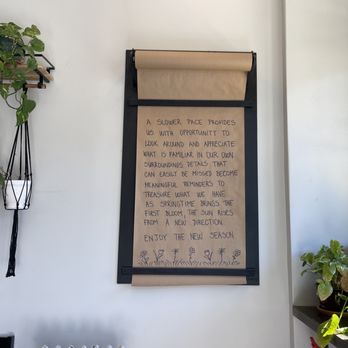 A SLOWER PACE PROVIDES
US WITH OPPORTUNITY TO
LOOK AROUND AND APPRECIATE
WHAT IS FAMILIAR IN OUR OWN
SURROUNDINGS. DETAILS THAT
CAN EASILY BE MISSED BECOME
MEANINGFUL REMINDERS TO
TREASURE WHAT WE HAVE
AS SPRINGTIME BRINGS THE
FIRST BLOOM, THE SUN RISES
FROM A NEW DIRECTION.
ENJOY THE NEW SEASON.